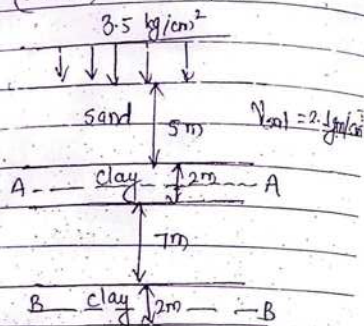 3.5 kg/cm²
sand
5m
γsat = 2.1gm/cm³
A - - - clay - 2m - - - A
7m
B - clay 2m - - B